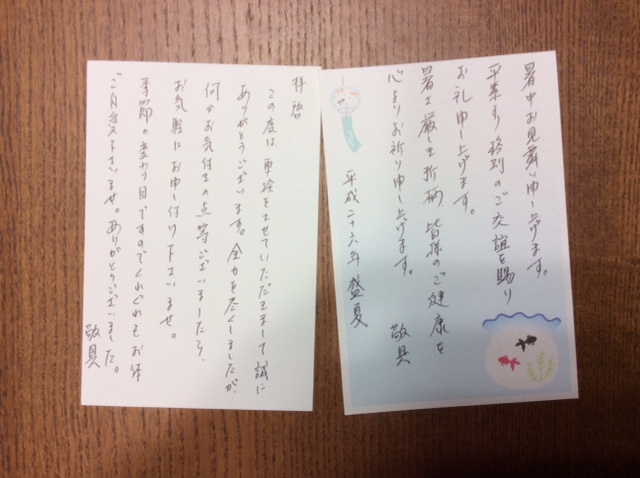 暑中お見舞い申し上げます。
平素より格別のご交誼を賜り
お礼申し上げます。
暑さ厳しき折柄 皆様のご健康を
心よりお祈り申し上げます。
敬具
平成二十六年 盛夏
拝啓
この度は 車検をさせていただきまして誠に
ありがとうございます。全力を尽くしましたが、
何かお気付きの点等ございましたら、
お気軽にお申し付け下さいませ。
季節の変わり目ですのでくれぐれもお体
ご自愛下さいませ。ありがとうございました。
敬具